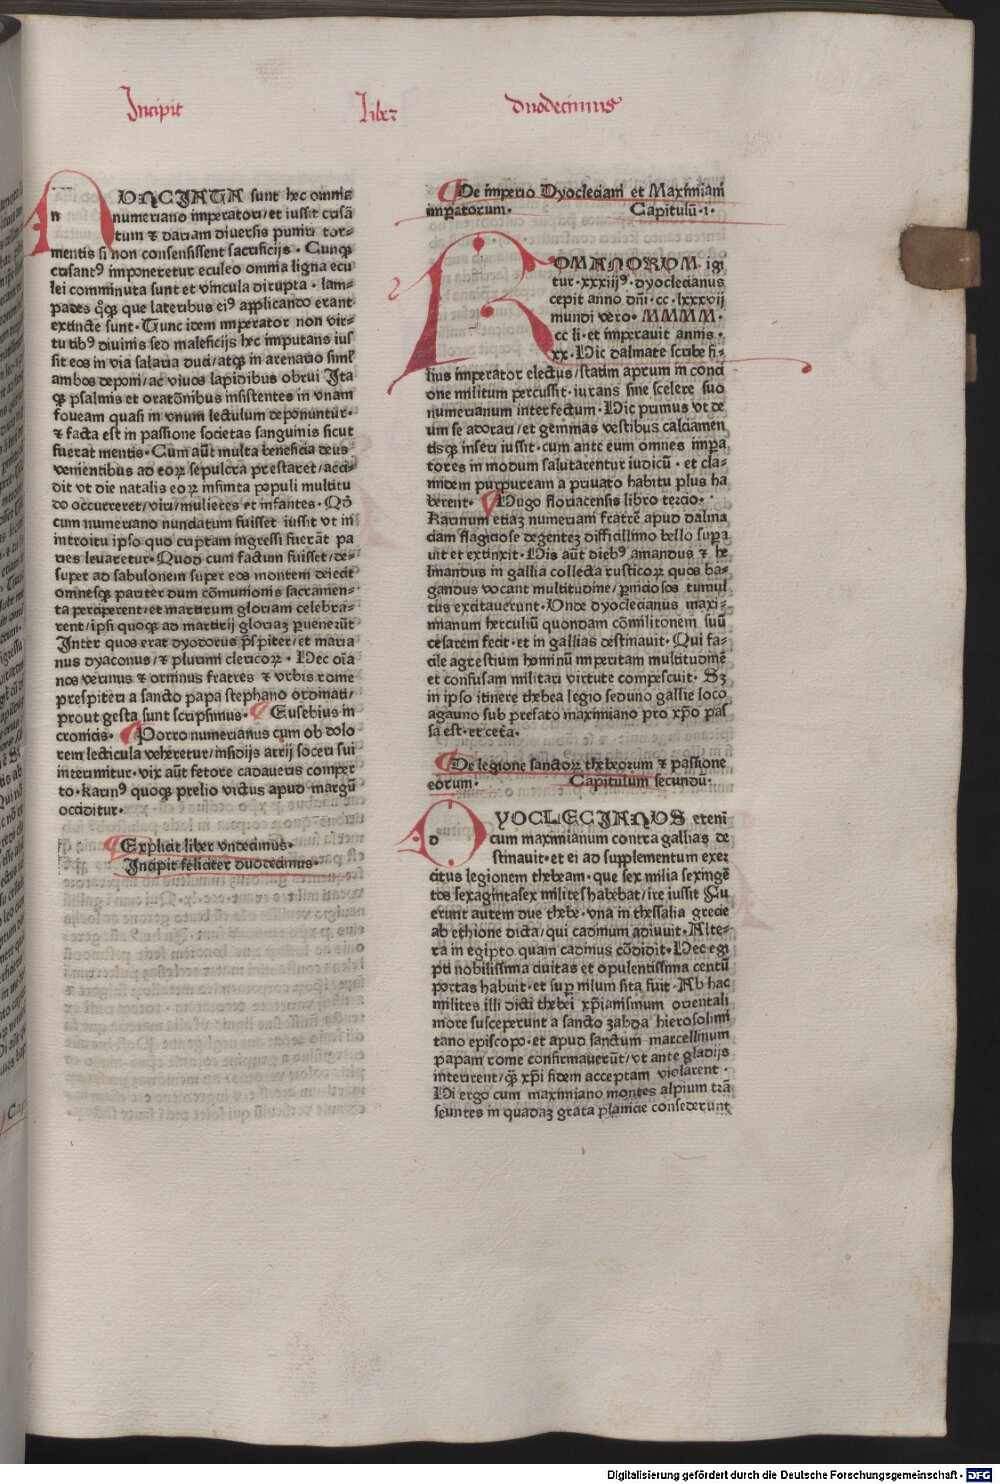 Incipit Liber duodecimus
NVNCIATA sunt hec omnia
n numeriano imperatori/et iussit crisā
tum ⁊ dariam diuersis puniri tor⸗
mentis si non consensissent sacrificijs · Cunqꝫ
crisantꝰ imponeretur eculeo omnia ligna ecu
lei comminuta sunt et vincula dirupta · lam⸗
pades qͦqꝫ que lateribus eiꝰ applicando erant
extincte sunt · Tunc idem imperator non vir⸗
tutibꝰ diuinis sed maleficijs hec imputans ius
sit eos in via salaria duci/atqꝫ in arenario siml̄
ambos deponi/ac viuos lapidibus obrui Ita
qꝫ psalmis et oratōnibus insistentes in vnam
foueam quasi in vnum lectulum deponuntur·
⁊ facta est in passione societas sanguinis sicut
fuerat mentis · Cum aūt multa beneficia deus
venientibus ad eoꝝ sepulcra prestaret/acci⸗
dit vt die natalis eoꝝ infinita populi multitu
do occurreret/viri/mulieres et infantes · Qō
cum numeriano nunciatum fuisset iussit vt in
introitu ipso quo criptam ingressi fuerāt pa
ries leuaretur · Quod cum factum fuisset/de⸗
super ad sabulonem super eos montem deiecit
omnesqꝫ pariter dum cōmunionis sacramen⸗
ta perciperent/et martirum gloriam celebra⸗
rent/ipsi quoqꝫ ad martirij gloriaȝ ꝑuenerūt
Inter quos erat dyodorus p̄sƀiter/et maria
nus dyaconus/⁊ plurimi clericoꝝ · Hec oīa
nos verinus ⁊ orminus fratres ⁊ vrbis rome
presƀiteri a sancto papa stephano ordinati/
prout gesta sunt scripsimus · Eusebius in
cronicis · Porro numerianus cum ob dolo
rem lecticula veheretur/insidijs arrij soceri sui
interimitur · vix aūt fetore cadaueris comper
to · Karinꝰ quoqꝫ prelio victus apud margū
occiditur ·
Explicit liber vndecimus·
Incipit feliciter duodecimus·
De imperio Dyocleciani et Maximiani
imꝑatorum· Capitulū·i·
ROMANORUM igi
tur ·xxxiijꝰ· dyoclecianus
cepit anno dn̄i ·cc·lxxxvij
mundi vero· MMMM·
cc li·et imperauit annis·
xx·Hic dalmate scribe fi⸗
lius imperator electus/statim aprum in conci
one militum percussit·iurans sine scelere suo
numerianum interfectum·Hic primus vt de
um se adorari/et gemmas vestibus calciamen
tisqꝫ inseri iussit·cum ante eum omnes imꝑa
tores in modum salutarentur iudicū·et cla⸗
midem purpuream a priuato habitu plus ha
berent· Hugo floriacensis libro tercio·
Karinum etiaȝ numeriani fratrē apud dalma
ciam flagiciose degenteȝ difficillimo bello suꝑa
uit et extinxit·His aūt diebꝰ amandus ⁊ he
limandus in gallia collecta rusticoꝝ quos ba⸗
gandus vocant multitudine/ꝑniciosos tumul
tus excitauerunt·Vnde dyoclecianus maxi⸗
mianum herculiū quondam cōmilitonem suū
cesarem fecit·et in gallias destinauit·Qui fa⸗
cile agrestium hominū imperitam multitudinē
et confusam militari virtute compescuit·Sȝ
in ipso itinere thebea legio seduno gallie loco
agauno sub prefato maximiano pro xp̄o pas
sa est·et cetā·
De legione sanctoꝝ thebeorum ⁊ passione
eorum· Capitulum secundū·
DYOCLECIANVS ereni
d cum maximianum contra gallias de
stinauit·et ei ad supplementum exer
citus legionem thebeam·que sex milia sexingē
tos sexagintasex milites habebat/ire iussit Fu
erunt autem due thebe·vna in thessalia grecie
ab ethione dicta/qui cadmum adiuuit·Alte⸗
ra in egipto quam cadmus cōdidit·Hec egi
pti nobilissima ciuitas et opulentissima centū
portas habuit·et suꝑ nilum sita fuit·Ab hac
milites illi dicti thebei xp̄ianismum orientali
more susceperunt a sancto zabda hierosolimi
tano episcopo·et apud sanctum marcellinum
papam rome confirmauerūt/vt ante gladijs
interirent/q̄ꝫ xp̄i fidem acceptam violarent·
Hi ergo cum maximiano montes alpium trā
seuntes in quadaȝ grata planicie consederunt
Digitalisierung gefördert durch die Deutsche Forschungsgemeinschaft - DFG